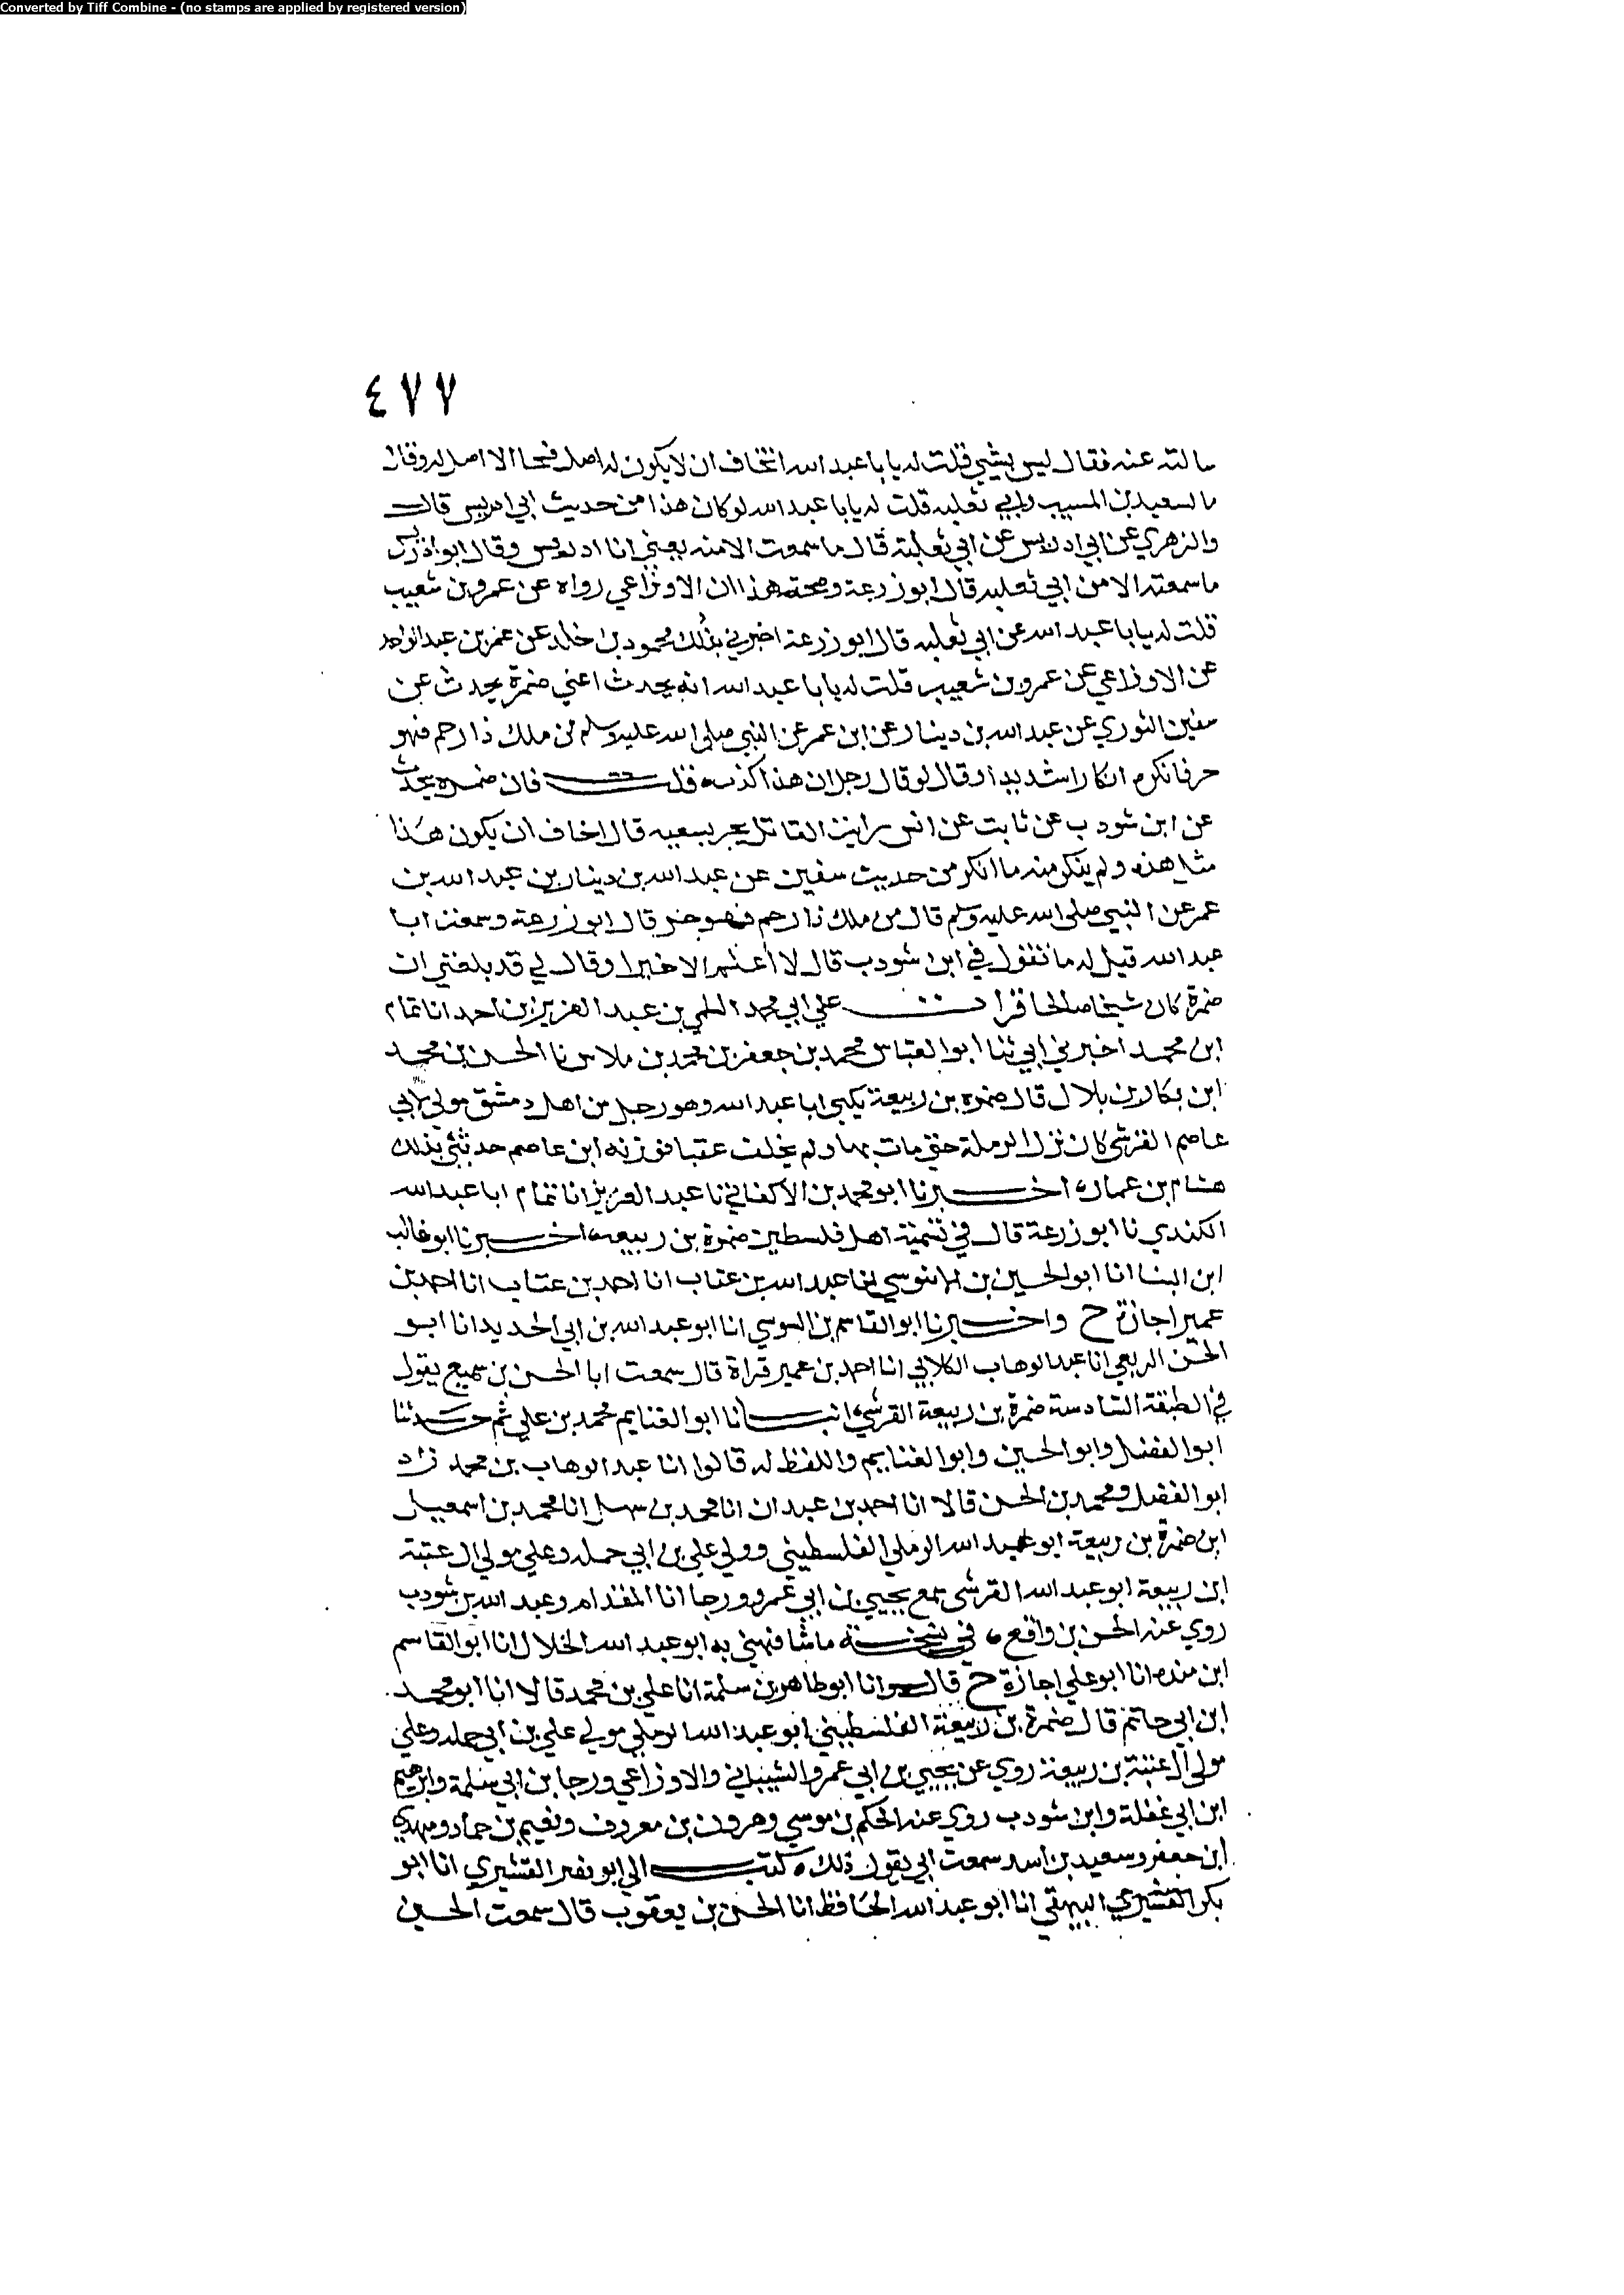 Converted by Tiff Combine - (no stamps are applied by registered version)
٤٧٧
سالته عنه فقال ليس بشي قلت له يابا عبد الله اتخاف ان لا يكون له اصل فقال لا اصل له وقال
ما لسعيد بن المسيب وابي ثعلبه قلت له يابا عبد الله لو كان هذا من حديث ابي ادريس قال
والزهري عن ابي ادريس عن ابي ثعلبة قال ما سمعت الا منه يعني انا ادريس وقال ابو ادريس
ما سمعته الا من ابي ثعلبه قال ابو زرعة وصحة هذا ان الاوزاعي رواه عن عمرو بن شعيب
قلت له يابا عبد الله عن ابي ثعلبه قال ابو زرعة اخبرني بذلك محمود بن خالد عن عمر بن عبد الواحد
عن الاوزاعي عن عمرو بن شعيب قلت له يابا عبد الله انه يحدث اعني ضمرة يحدث عن
سفين الثوري عن عبد الله بن دينار عن ابن عمر عن النبي صلى الله عليه وسلم من ملك ذا رحم فهو
حر فانكره انكارا شديدا وقال لو قال رجل ان هذا كذب قلت فان ضمره يحدث
عن ابن شوذب عن ثابت عن انس رايت القاتل يجر بسعيه قال اخاف ان يكون هذا
مثل هذه ولم ينكر منه ما انكر من حديث سفين عن عبد الله بن دينار بن عبد الله بن
عمر عن النبي صلى الله عليه وسلم قال من ملك ذا رحم فهو حر قال ابو زرعة وسمعت ابا
عبد الله قيل له ما تقول في ابن شوذب قال لا اعلم الا خيرا وقال لي قد بلغني ان
ضمرة كان شيخا صالحا قرات علي ابي محمد السلمي بن عبد العزيز بن احمد انا تمام
ابن محمد اخبرني ابي ثنا ابو العباس محمد بن جعفر بن محمد بن ملاس نا الحسن بن محمد
ابن بكار بن بلال قال ضمره بن ربيعة يكنى ابا عبد الله وهو رجل من اهل دمشق مولى لابي
عاصم القرشي كان نزل الرملة حتى مات بها ولم يخلف عقبا فورثه ابن عاصم حدثني بذلك
هشام بن عمار اخبرنا ابو محمد بن الاكفاني نا عبد العزيز انا تمام ابا عبد الله
الكندي نا ابو زرعة قال في تسمية اهل فلسطين ضمرة بن ربيعه اخبرنا ابو غالب
ابن البنا انا ابو الحسين بن الابنوسي انا عبد الله بن عتاب انا احمد بن عتاب انا احمد بن
عمير اجازة ح واخبرنا ابو القاسم بن السوسي انا ابو عبد الله بن ابي الحديد انا ابو
الحسن الربعي انا عبد الوهاب الكلابي انا احمد بن عمير قراة قال سمعت ابا الحسن بن سميع يقول
في الطبقة السادسة ضمرة بن ربيعة القرشي انبانا ابو الغنايم محمد بن علي ثم حدثنا
ابو الفضل وابو الحسين وابو الغنايم واللفظ له قالوا انا عبد الوهاب بن محمد زاد
ابو الفضل ومحمد بن الحسن قالا انا احمد بن عبدان انا محمد بن سهل انا محمد بن اسمعيل
ابن ضمرة بن ربيعة ابو عبد الله الرملي الفلسطيني وولي علي بن ابي حمله وعلي مولى ال عتبة
ابن ربيعة ابو عبد الله القرشي سمع يحيى بن ابي عمرو ورجا انا المقدام وعبد الله بن شوذب
روي عنه الحسن بن واقع في نسخة ما شافهني به ابو عبد الله الخلال انا ابو القاسم
ابن منده انا ابو علي اجازة ح قال وانا ابو طاهر بن سلمة انا علي بن محمد قالا انا ابو محمد
ابن ابي حاتم قال ضمرة بن ربيعة الفلسطيني ابو عبد الله الرملي مولى علي بن ابي حمله وعلي
مولى ال عتبة بن ربيعة روي عن يحيى بن ابي عمرو الشيباني والاوزاعي ورجا بن ابي سلمة وابرهيم
ابن ابي عبلة وابن شوذب روي عنه الحكم بن موسي وهرون بن معروف ونعيم بن حماد ومهدي
ابن جعفر وسعيد بن اسد سمعت ابي يقول ذلك كتب الي ابو نصر القشيري انا ابو
بكر القشيري البيهقي انا ابو عبد الله الحافظ انا الحسن بن يعقوب قال سمعت الحسين